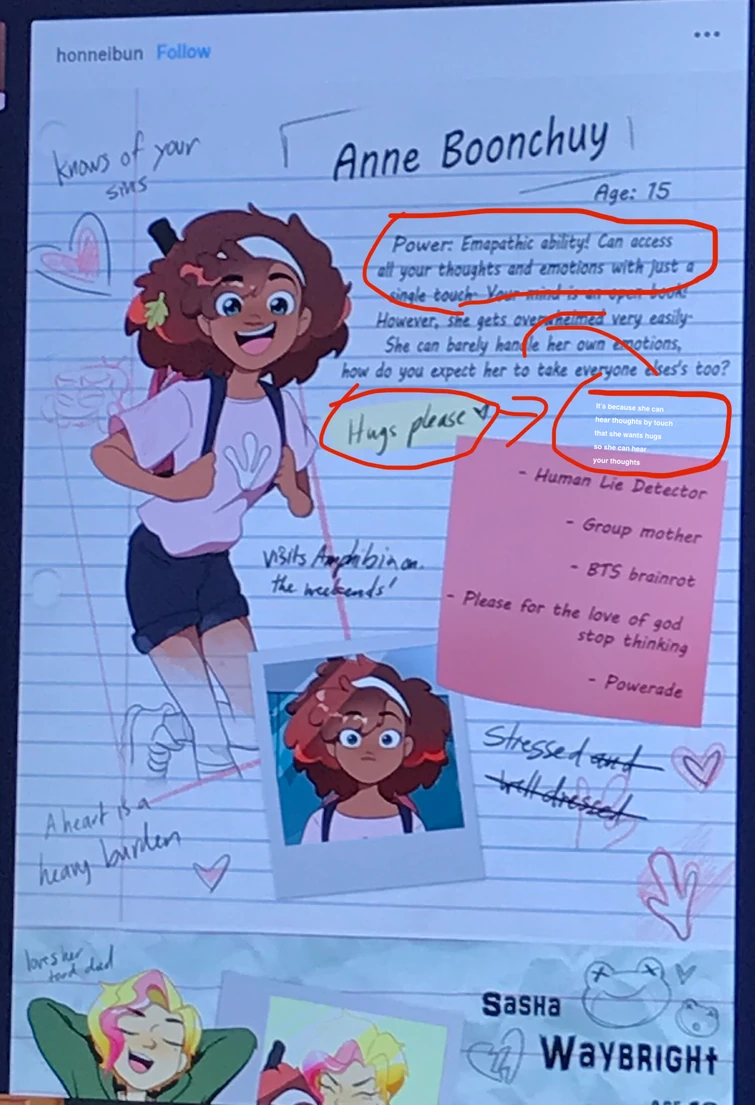 honneibun Follow
knows of your
sins
Anne Boonchuy
Age: 15
Power: Emapathic ability! Can access
all your thoughts and emotions with just a
single touch. Your mind is an open book!
However, she gets overwhelmed very easily.
She can barely handle her own emotions,
how do you expect her to take everyone elses's too?
Hugs please
It's because she can
hear thoughts by touch
that she wants hugs
so she can hear
your thoughts
- Human Lie Detector
- Group mother
- BTS brainrot
- Please for the love of god
stop thinking
- Powerade
visits Amphibia on
the weekends!
Stressed and
well dressed
A heart is a
heavy burden
loves her
toad dad
Sasha
Waybright